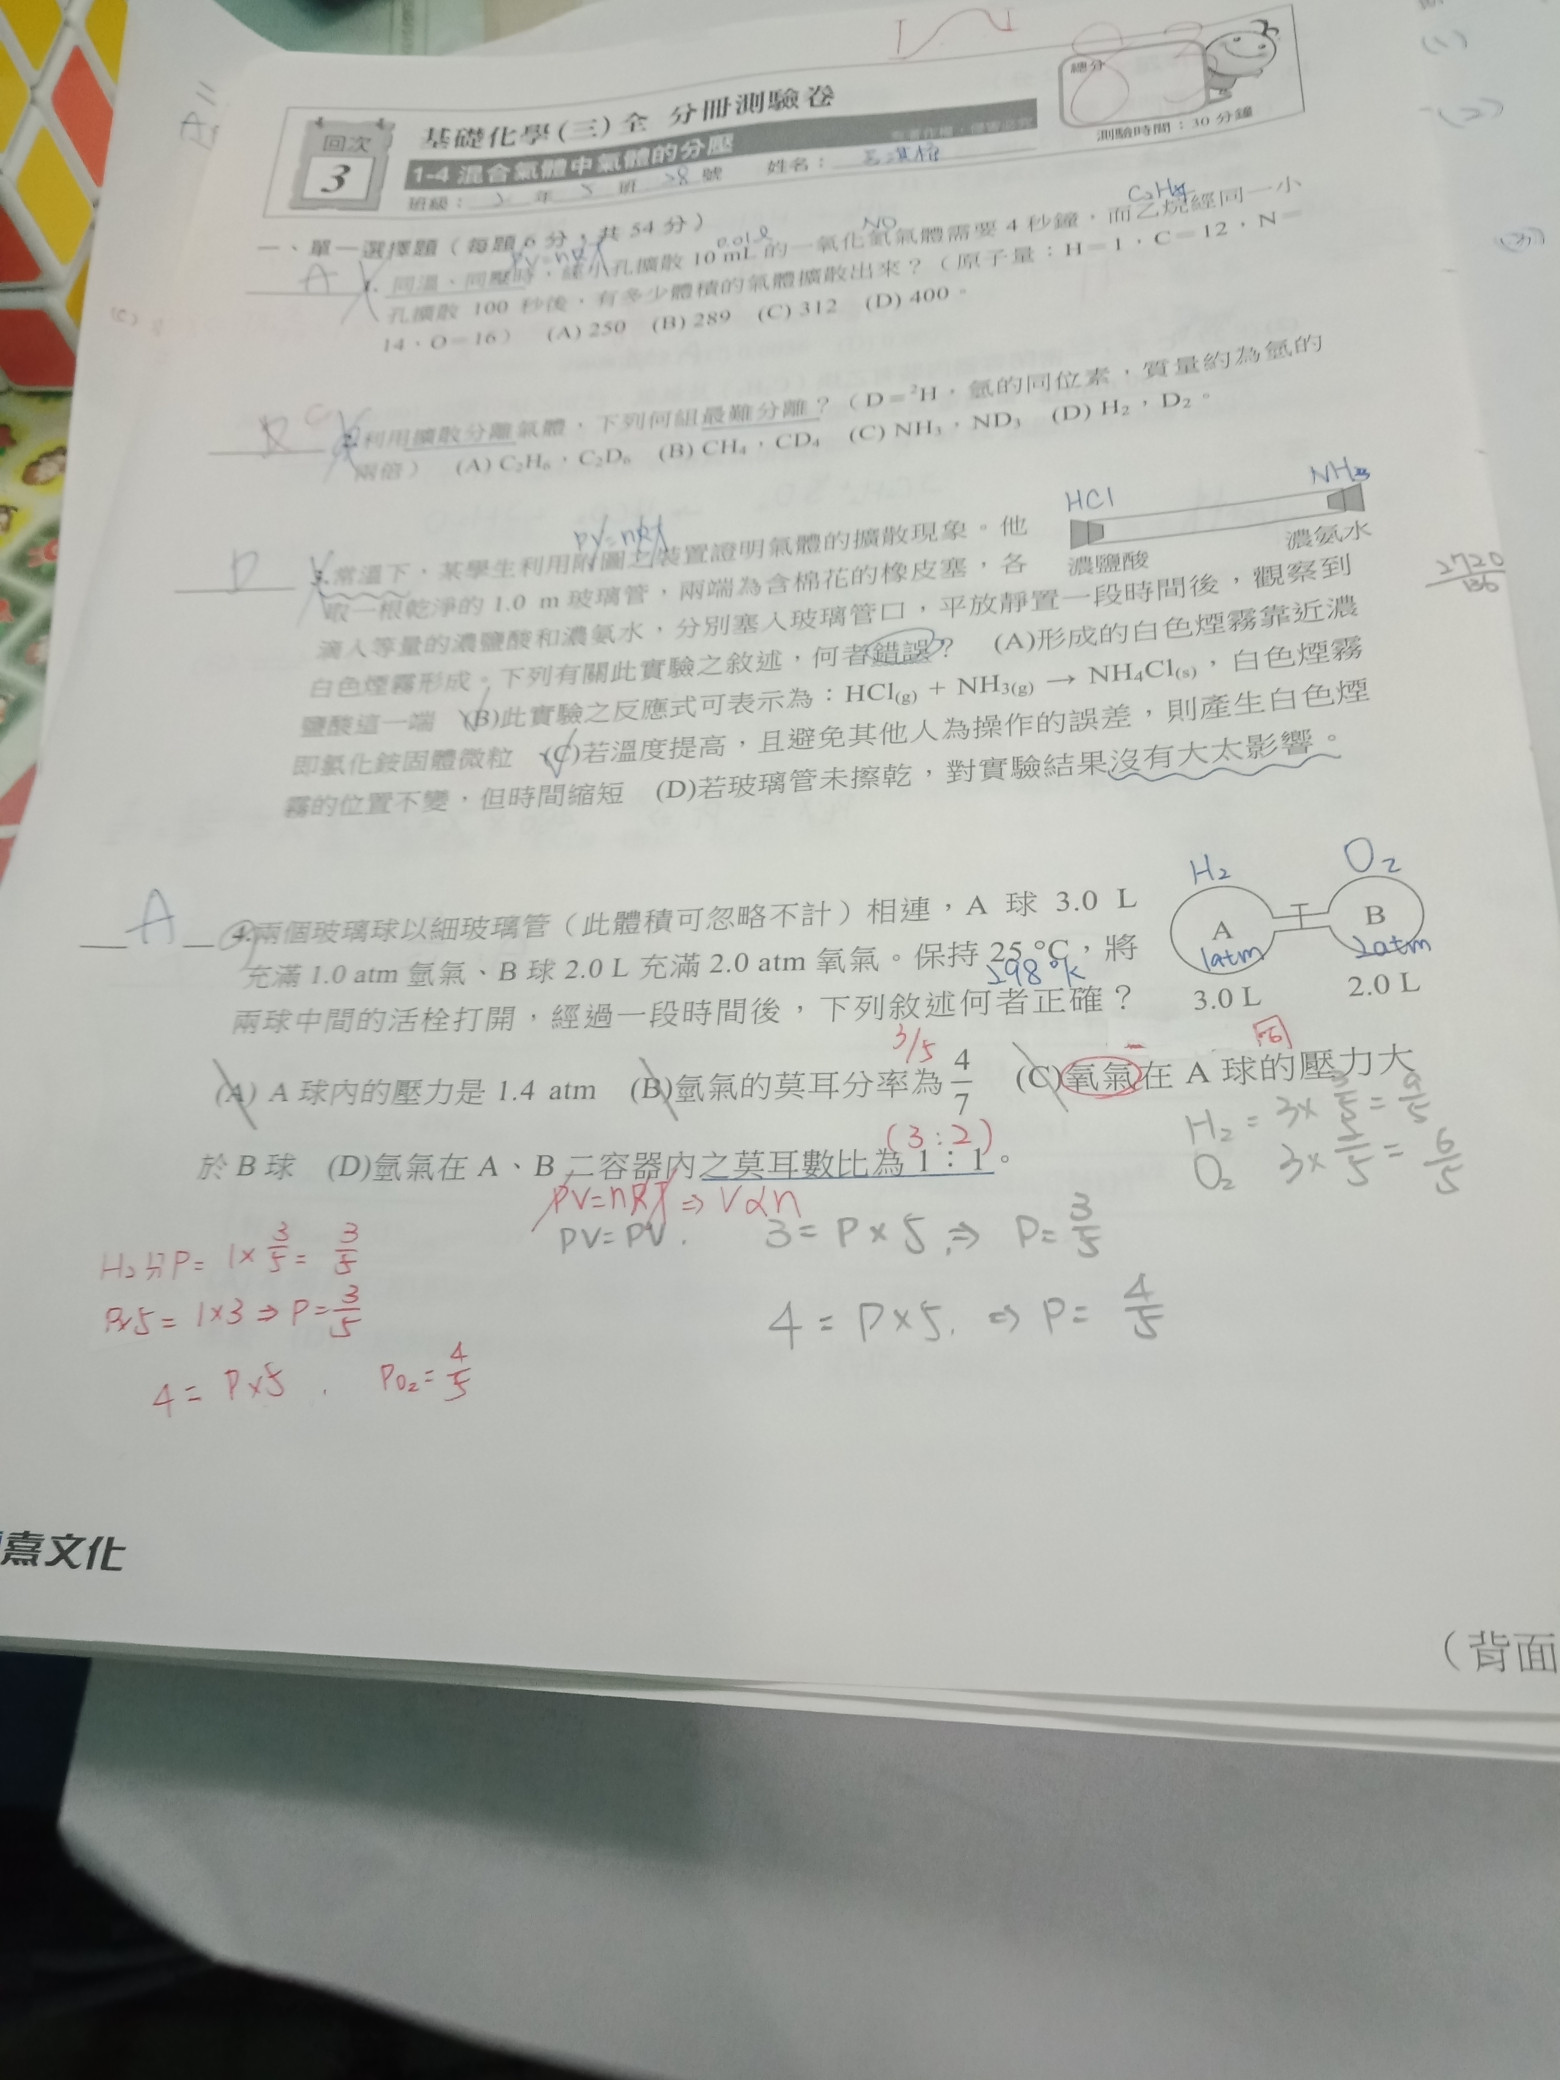 總分
83
測驗時間：30 分鐘
回次
3
基礎化學(三)全 分冊測驗卷
1-4 混合氣體中氣體的分壓
班級： 2 年 5 班 28 號 姓名：
一、單一選擇題（每題 6 分，共 54 分）
PV=nRT 0.01ℓ NO C2H6
A 1. 同溫、同壓時，經小孔擴散 10 mL 的一氧化氮氣體需要 4 秒鐘，而乙烷經同一小
孔擴散 100 秒後，有多少體積的氣體擴散出來？（原子量：H＝1，C＝12，N＝
14，O＝16） (A) 250 (B) 289 (C) 312 (D) 400。
C
2. 利用擴散分離氣體，下列何組最難分離？（D＝²H，氫的同位素，質量約為氫的
兩倍） (A) C₂H₆，C₂D₆ (B) CH₄，CD₄ (C) NH₃，ND₃ (D) H₂，D₂。
PV=nRT HCl NH3
濃鹽酸 濃氨水
D 3. 常溫下，某學生利用附圖之裝置證明氣體的擴散現象。他
取一根乾淨的 1.0 m 玻璃管，兩端為含棉花的橡皮塞，各
滴入等量的濃鹽酸和濃氨水，分別塞入玻璃管口，平放靜置一段時間後，觀察到
白色煙霧形成。下列有關此實驗之敘述，何者錯誤？ (A)形成的白色煙霧靠近濃
鹽酸這一端 (B)此實驗之反應式可表示為：HCl(g) + NH₃(g) → NH₄Cl(s)，白色煙霧
即氯化銨固體微粒 (C)若溫度提高，且避免其他人為操作的誤差，則產生白色煙
霧的位置不變，但時間縮短 (D)若玻璃管未擦乾，對實驗結果沒有太大影響。
2720
136
H2 O2
A B
1atm 2atm
3.0 L 2.0 L
A 4. 兩個玻璃球以細玻璃管（此體積可忽略不計）相連，A 球 3.0 L
充滿 1.0 atm 氫氣、B 球 2.0 L 充滿 2.0 atm 氧氣。保持 25 °C，將
298°k
兩球中間的活栓打開，經過一段時間後，下列敘述何者正確？
3/5 同
(A) A 球內的壓力是 1.4 atm (B)氫氣的莫耳分率為 4/7 (C)氧氣在 A 球的壓力大
(3:2)
於 B 球 (D)氫氣在 A、B 二容器內之莫耳數比為 1：1。
H2 = 3× 3/5 = 9/5
O2 3× 2/5 = 6/5
PV=nRT ⇒ V∝n
PV=PV. 3=P×5 ⇒ P=3/5
4=P×5. ⇒ P=4/5
H2分P= 1×3/5=3/5
P×5=1×3 ⇒ P=3/5
4=P×5. PO2=4/5
熹文化
（背面
(1)
(2)
(3)